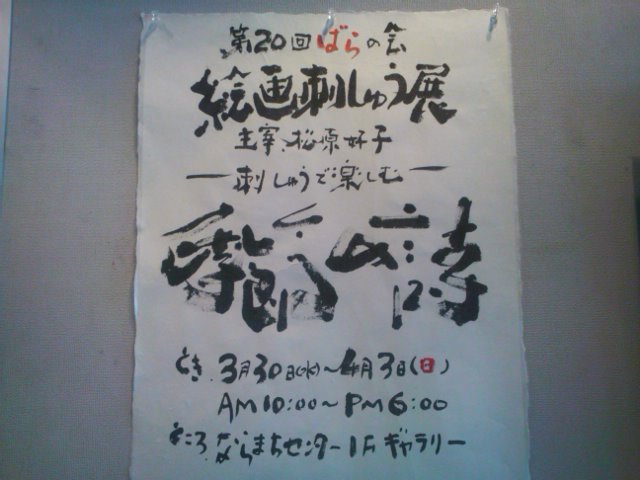 第20回ばらの会
絵画刺しゅう展
主宰 松原好子
ー刺しゅうで楽しむー
の詩
とき 3月30日(水)～4月3日(日)
AM10:00～PM6:00
ところ ならまちセンター1Fギャラリー